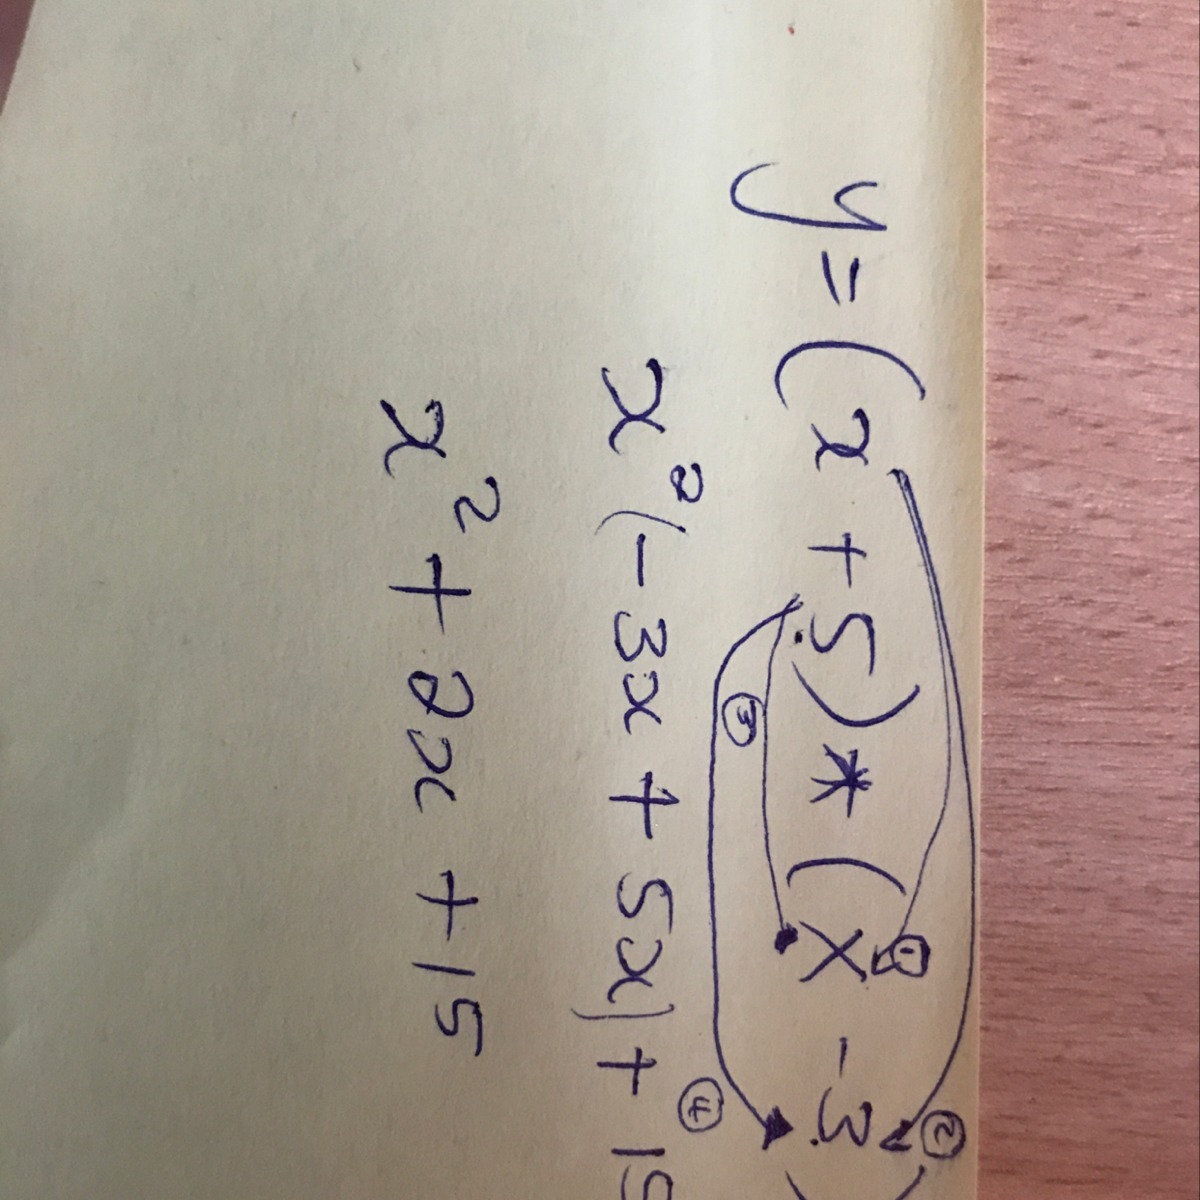 y = (x + 5) * (x - 3)
① ② ③ ④
x² (- 3x + 5x) + 15
x² + 2x + 15